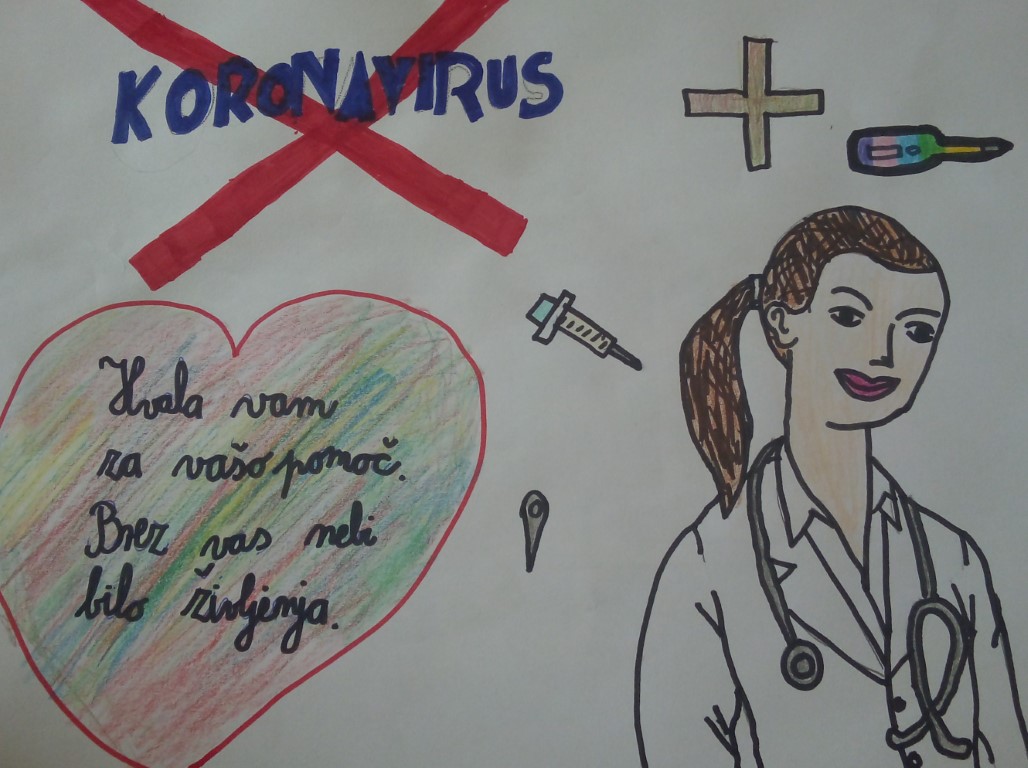 KORONAVIRUS
Hvala vam
za vašo pomoč.
Brez vas nebi
bilo življenja.